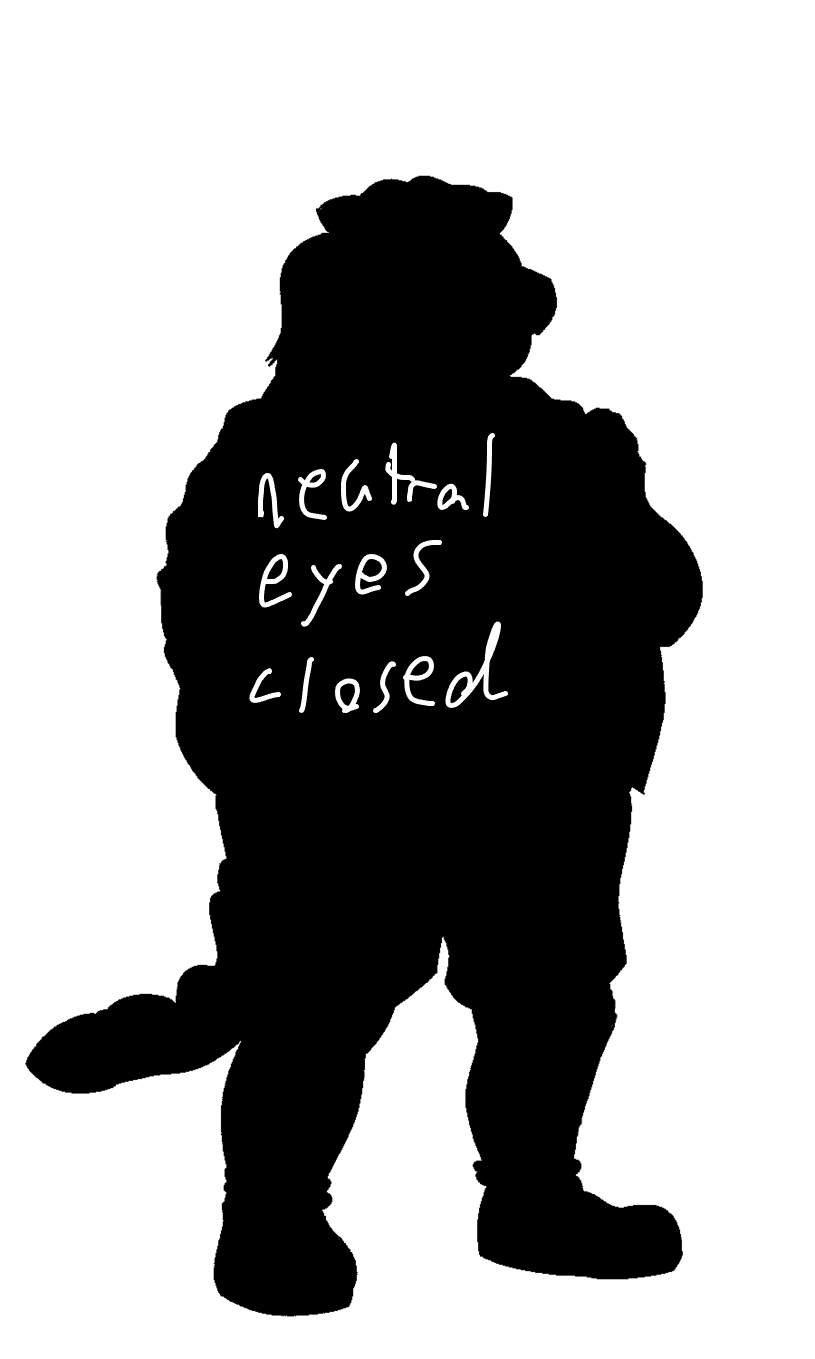 neutral
eyes
closed